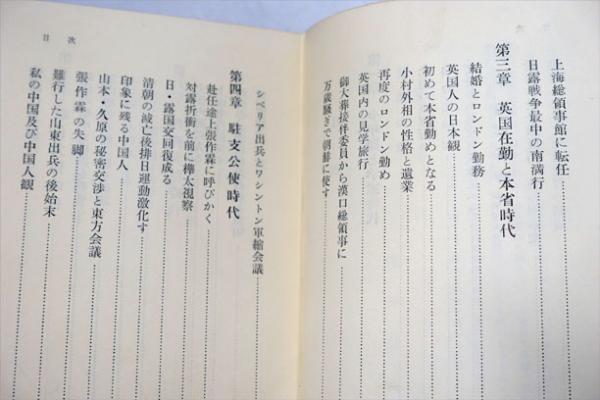 上海総領事館に転任
日露戦争最中の南満行
第三章　英国在勤と本省時代
結婚とロンドン勤務
英国人の日本観
初めて本省勤めとなる
小村外相の性格と遺業
再度のロンドン勤め
英国内の見学旅行
御大葬接伴委員から漢口総領事に
万歳騒ぎで朝鮮に使す
目次
シベリア出兵とワシントン軍縮会議
第四章　駐支公使時代
赴任途上張作霖に呼びかく
対露折衝を前に樺太視察
日・露国交回復成る
清朝の滅亡後排日運動激化す
印象に残る中国人
山本・久原の秘密交渉と東方会議
張作霖の失脚
難行した山東出兵の後始末
私の中国及び中国人観